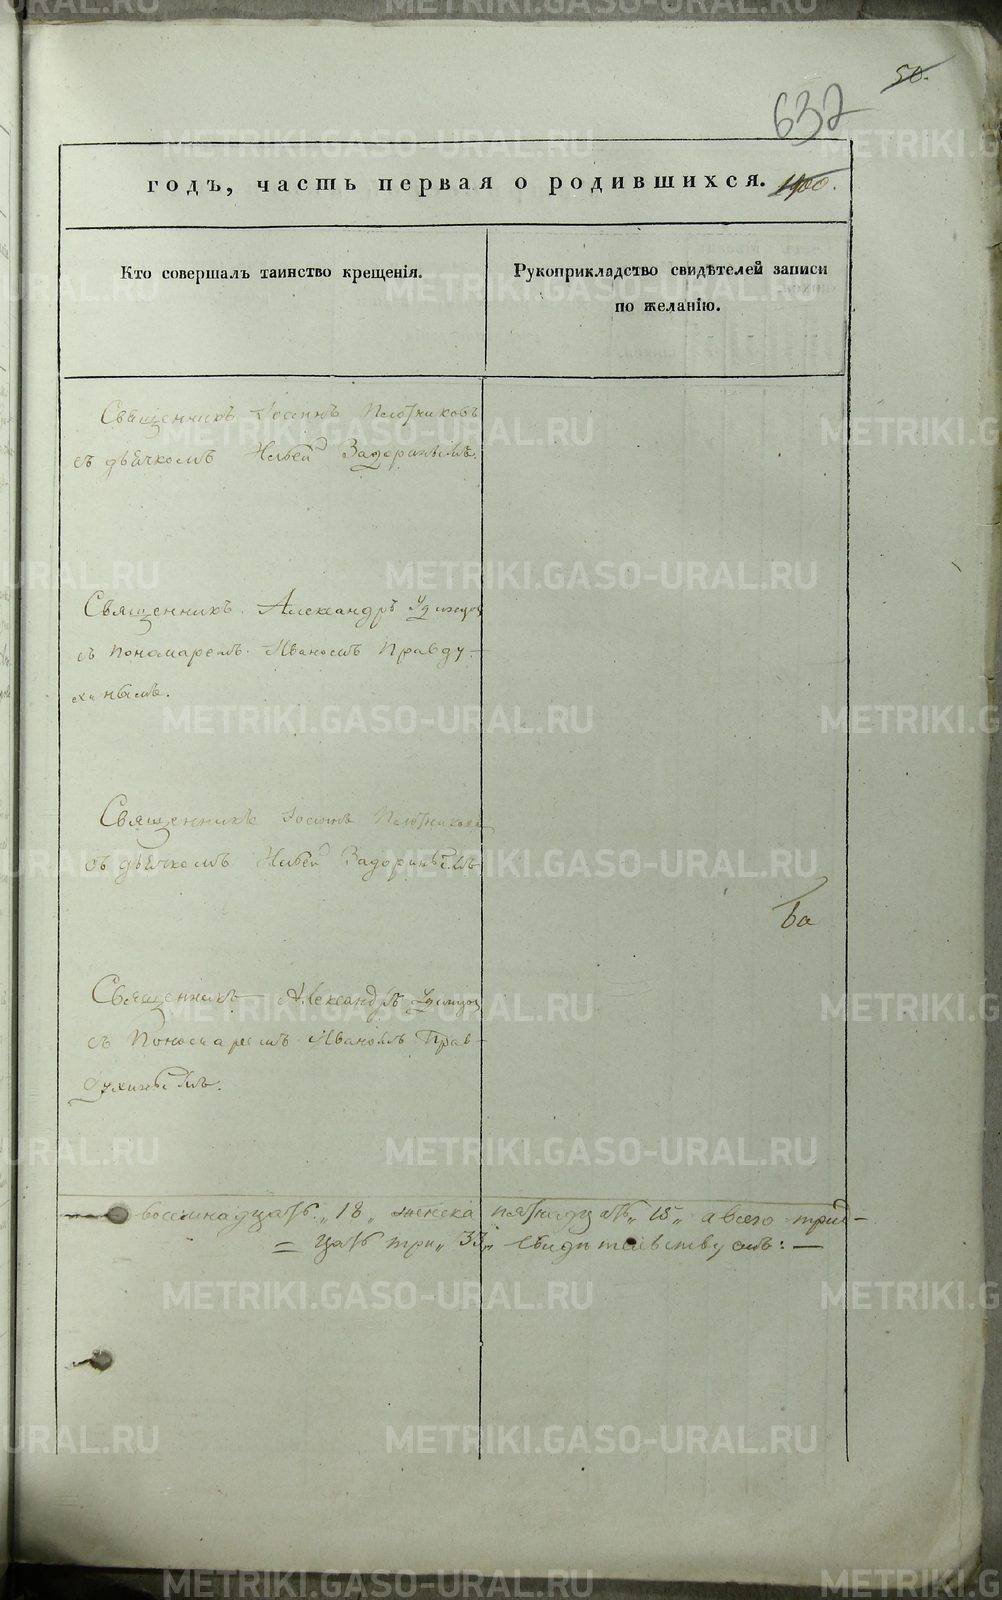 50.
632
годъ, часть первая о родившихся. 1900.
Кто совершалъ таинство крещенія.
Рукоприкладство свидѣтелей записи
по желанію.
Священникъ Іоаннъ Плотниковъ
съ дьячкомъ Задоринымъ.
Священникъ Александръ Удинцов
съ пономаремъ Иваномъ Правду-
хинымъ.
Священникъ Іоаннъ Плотников
съ дьячкомъ Задоринымъ
ва
Священникъ Александръ Удинцов
съ Пономаремъ Иваномъ Прав-
духинымъ.
восемнадцать „18„ женска пятнадцать „15„ а всего трид-
= цать три „33„ свидѣтельствуемъ: —
METRIKI.GASO-URAL.RU